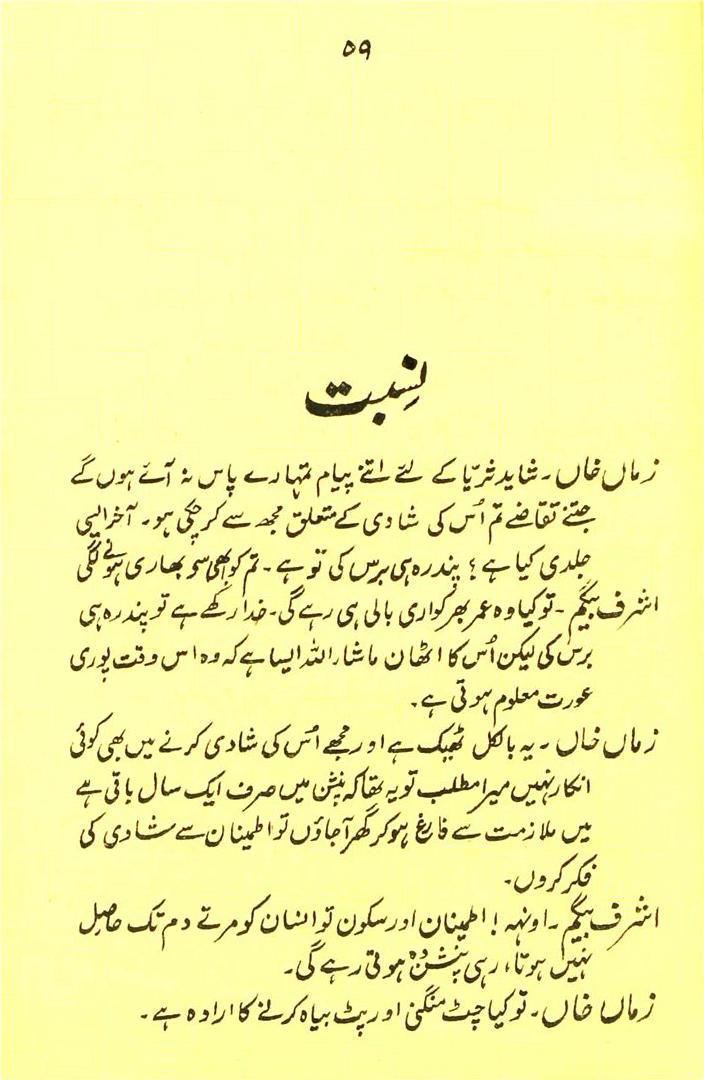 ۵۹
نِسبت
زماں خاں ۔ شاید ثریّا کے لئے اتنے پیام تمہارے پاس نہ آئے ہوں گے
جتنے تقاضے تم اُس کی شادی کے متعلق مجھ سے کر چکی ہو۔ آخر ایسی
جلدی کیا ہے؟ پندرہ ہی برس کی تو ہے۔ تم کو ابھی سے بھاری ہونے لگی
اشرف بیگم ۔ تو کیا وہ عمر بھر کنواری بالی ہی رہے گی۔ خدا رکھے ہے تو پندرہ ہی
برس کی لیکن اُس کا اٹھان ماشاء اللہ ایسا ہے کہ وہ اس وقت پوری
عورت معلوم ہوتی ہے۔
زماں خاں ۔ یہ بالکل ٹھیک ہے اور مجھے اُس کی شادی کرنے میں بھی کوئی
انکار نہیں میرا مطلب تو یہ تھا کہ پنشن میں صرف ایک سال باقی ہے
میں ملازمت سے فارغ ہوکر گھر آجاؤں تو اطمینان سے شادی کی
فکر کروں۔
اشرف بیگم ۔ اونہہ! اطمینان اور سکون تو انسان کو مرتے دم تک حاصل
نہیں ہوتا، رہی پنشن وہ ہوتی رہے گی۔
زماں خاں ۔ تو کیا چٹ منگنی اور پٹ بیاہ کرنے کا ارادہ ہے۔